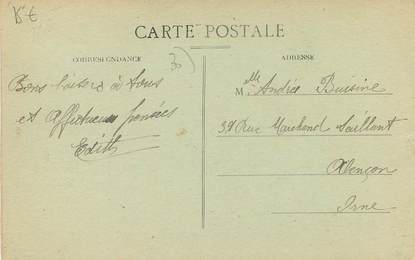 15 €
CARTE POSTALE
CORRESPONDANCE
ADRESSE
Bons baisers à tous
et affectueuses pensées
Edith
Mlle Andrée Buisine
37 Rue Marchand Saillant
Alençon
Orne